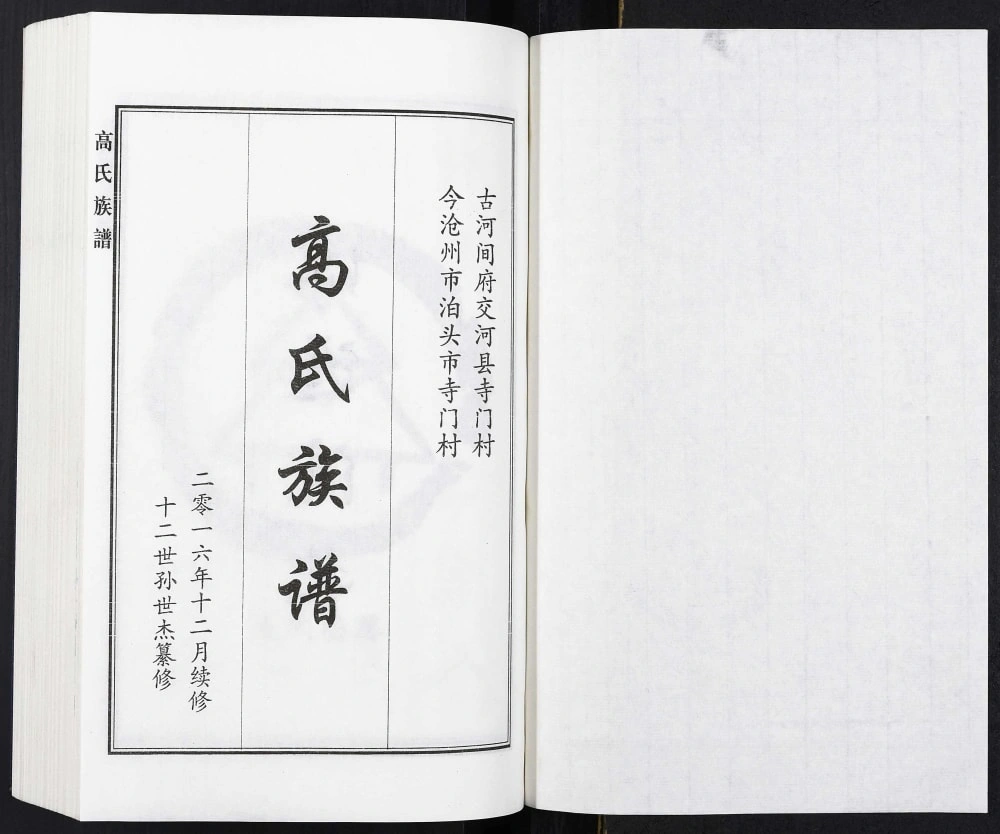 古河间府交河县寺门村
今沧州市泊头市寺门村
高氏族谱
二零一六年十二月续修
十二世孙世杰纂修
高氏族譜